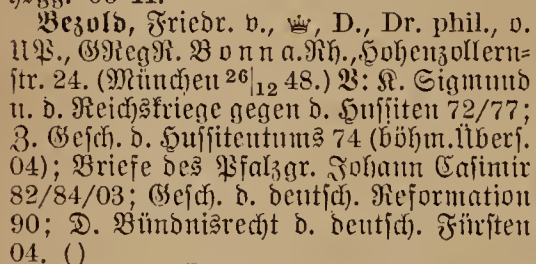 Bezold, Friedr. v., ♕, D., Dr. phil., o.
UP., GRegR. Bonn a. Rh., Hohenzollern=
str. 24. (München 26|12 48.) V: K. Sigmund
u. d. Reichskriege gegen d. Hussiten 72/77;
Z. Gesch. d. Hussitentums 74 (böhm. Übers.
04); Briefe des Pfalzgr. Johann Casimir
82/84/03; Gesch. d. deutsch. Reformation
90; D. Bündnisrecht d. deutsch. Fürsten
04. ()